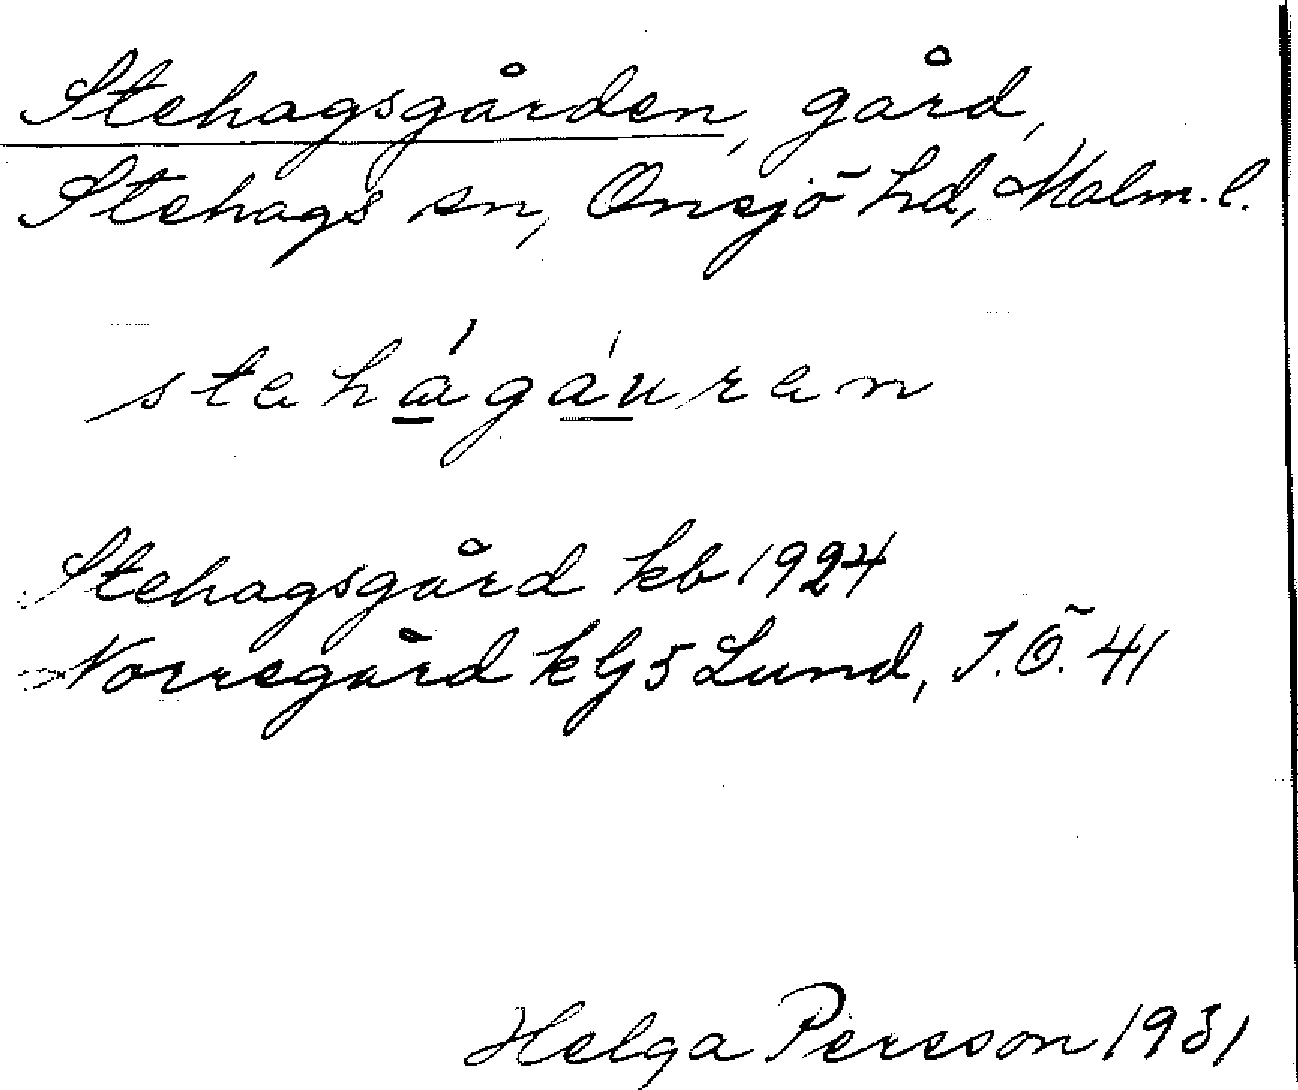 Stehagsgården, gård,
Stehags sn, Onsjö hd, Malm. l.
stehágáuren
Stehagsgård kb 1924
Norregård k G5 Lund, I.Ö. 41
Helga Persson 1931